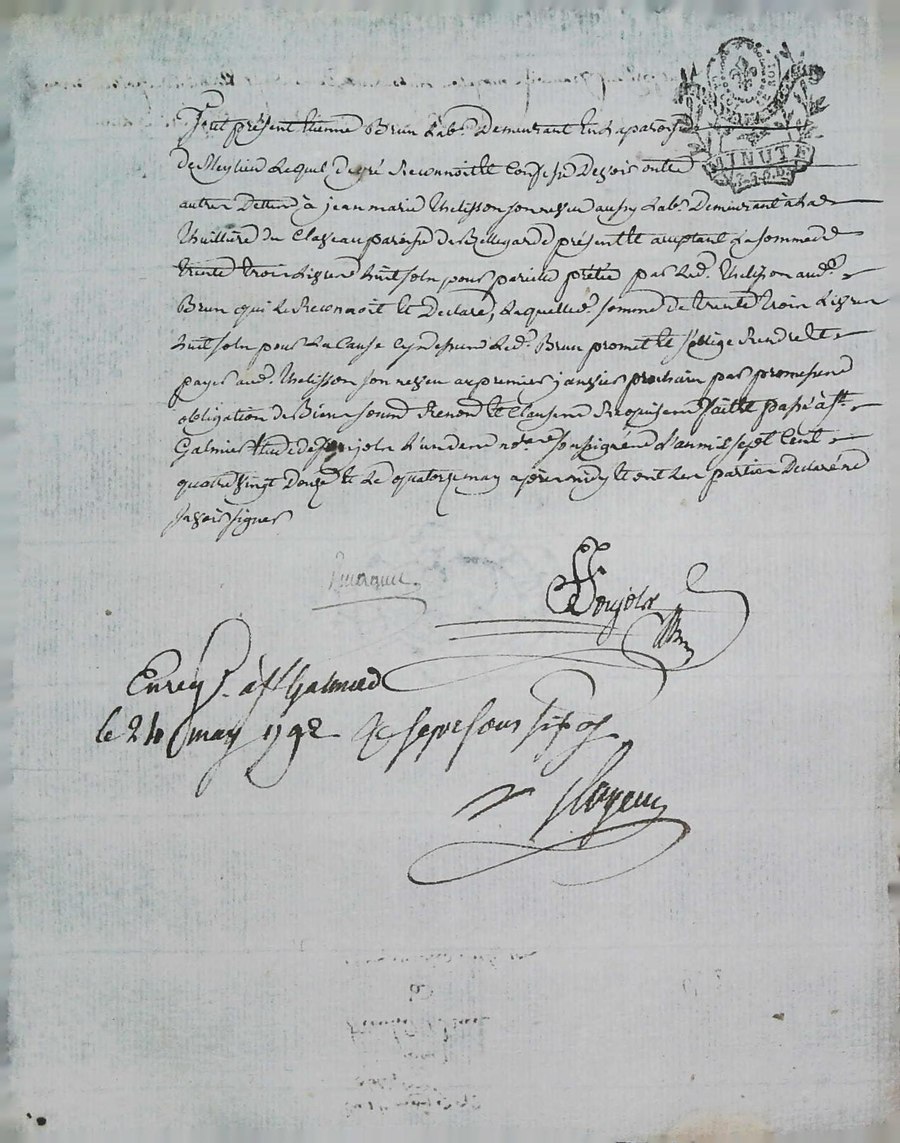 LA LOI LE ROI
MINUTE
Fut présent Etienne Brun Lab.r Demeurant En La paroisse
de Meylieu Lequel de gré Reconnoit et Confesse Devoir outre
autres Dettes à jean marie Thelisson son neveu aussy Lab.r Demeurant à La
Thuilliere du Claveau paroisse de Bellegarde présent et acceptant La somme de
trente trois Livres huit sols pour pareille prétée par Led. Thelisson aud.
Brun qui Le Reconnoit et Declare, Laquelle d. somme de trente trois Livres
huit sols pour La Cause cy dessus Led. Brun promet et s'oblige Rendre et
payer aud. Thelisson son neveu au premier janvier prochain par promesse
obligation de Biens soumis Renon. et Clauses Requises fait et passé à St.
Galmier Etude de Ponjols L'un des no.res soussignés L'an mil sept Cent
quatre vingt Douze et Le quatorze may après midy et ont Les parties Declaré ne
savoir signer
Enreg.r à St Galmier
le 24 may 1792 R sept sous six d.